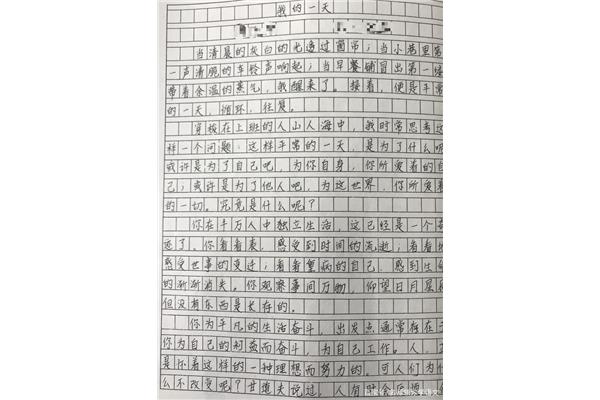 我的一天
当清晨的灰白的光透过窗帘；当小巷里第
一声清脆的车铃声响起；当早餐铺冒出第一缕
带着余温的蒸气，我醒来了。接着，便是平常
的一天，循环，往复。
穿梭在上班的人山人海中，我时常思考这
样一个问题：这样平常的一天，是为了什么呢
或许是为了自己吧，为你自身，你所爱着的自
己；或许是为了他人吧，为这世界，你所爱着
的一切。究竟是什么呢？
你在千万人中独立生活，这已经是一个奇
迹了。你看着表，感受到时间的流逝；看着
感受世事的变迁；看着重病的自己，感到生命
的渐渐消失。你观察事间万物，仰望日月星辰
但没有东西是长存的。
你为平凡的生活奋斗，出发点通常存在于
你为自己的利益而奋斗，为自己工作。人，
是怀着这样的一种理想而努力的。可人们为什
么不改变呢？甘道夫说过，人有时会